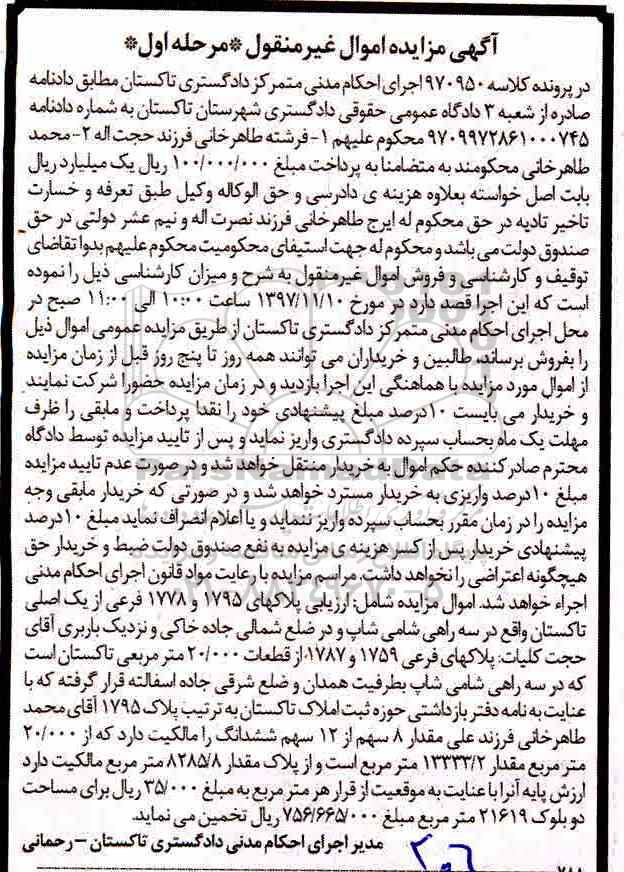 آگهی مزایده اموال غیرمنقول *مرحله اول*
در پرونده کلاسه ۹۷۰۹۵۰ اجرای احکام مدنی متمرکز دادگستری تاکستان مطابق دادنامه
صادره از شعبه ۳ دادگاه عمومی حقوقی دادگستری شهرستان تاکستان به شماره دادنامه
۹۷۰۹۹۷۲۸۶۱۰۰۰۷۴۵ محکوم علیهم ۱- فرشته طاهرخانی فرزند حجت اله ۲- محمد
طاهرخانی محکومند به متضامنا به پرداخت مبلغ ۱۰۰/۰۰۰/۰۰۰ ریال یک میلیارد ریال
بابت اصل خواسته بعلاوه هزینه ی دادرسی و حق الوکاله وکیل طبق تعرفه و خسارت
تاخیر تادیه در حق محکوم له ایرج طاهرخانی فرزند نصرت اله و نیم عشر دولتی در حق
صندوق دولت می باشد و محکوم له جهت استیفای محکومیت محکوم علیهم بدوا تقاضای
توقیف و کارشناسی و فروش اموال غیرمنقول به شرح و میزان کارشناسی ذیل را نموده
است که این اجرا قصد دارد در مورخ ۱۳۹۷/۱۱/۱۰ ساعت ۱۰:۰۰ الی ۱۱:۰۰ صبح در
محل اجرای احکام مدنی متمرکز دادگستری تاکستان از طریق مزایده عمومی اموال ذیل
را بفروش برساند، طالبین و خریداران می توانند همه روز تا پنج روز قبل از زمان مزایده
از اموال مورد مزایده با هماهنگی این اجرا بازدید و در زمان مزایده حضورا شرکت نمایند
و خریدار می بایست ۱۰درصد مبلغ پیشنهادی خود را نقدا پرداخت و مابقی را ظرف
مهلت یک ماه بحساب سپرده دادگستری واریز نماید و پس از تایید مزایده توسط دادگاه
محترم صادر کننده حکم اموال به خریدار منتقل خواهد شد و در صورت عدم تایید مزایده
مبلغ ۱۰درصد واریزی به خریدار مسترد خواهد شد و در صورتی که خریدار مابقی وجه
مزایده را در زمان مقرر بحساب سپرده واریز ننماید و یا اعلام انصراف نماید مبلغ ۱۰درصد
پیشنهادی خریدار پس از کسر هزینه ی مزایده به نفع صندوق دولت ضبط و خریدار حق
هیچگونه اعتراضی را نخواهد داشت. مراسم مزایده با رعایت مواد قانون اجرای احکام مدنی
اجراء خواهد شد. اموال مزایده شامل: ارزیابی پلاکهای ۱۷۹۵ و ۱۷۷۸ فرعی از یک اصلی
تاکستان واقع در سه راهی شامی شاپ و در ضلع شمالی جاده خاکی و نزدیک باربری آقای
حجت کلیات: پلاکهای فرعی ۱۷۵۹ و ۱۷۸۷، از قطعات ۲۰/۰۰۰ متر مربعی تاکستان است
که در سه راهی شامی شاپ بطرفیت همدان و ضلع شرقی جاده اسفالته قرار گرفته که با
عنایت به نامه دفتر بازداشتی حوزه ثبت املاک تاکستان به ترتیب پلاک ۱۷۹۵ آقای محمد
طاهرخانی فرزند علی مقدار ۸ سهم از ۱۲ سهم ششدانگ را مالکیت دارد که از ۲۰/۰۰۰
متر مربع مقدار ۱۳۳۳۳/۲ متر مربع است و از پلاک مقدار ۸۲۸۵/۸ متر مربع مالکیت دارد
ارزش پایه آنرا با عنایت به موقعیت از قرار هر متر مربع به مبلغ ۳۵/۰۰۰ ریال برای مساحت
دو بلوک ۲۱۶۱۹ متر مربع مبلغ ۷۵۶/۶۶۵/۰۰۰ ریال تخمین می نماید.
مدیر اجرای احکام مدنی دادگستری تاکستان – رحمانی